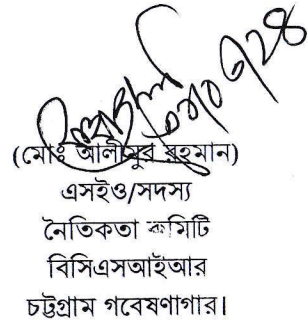 (মোঃ আলীমুর রহমান)
এসইও/সদস্য
নৈতিকতা কমিটি
বিসিএসআইআর
চট্টগ্রাম গবেষণাগার।